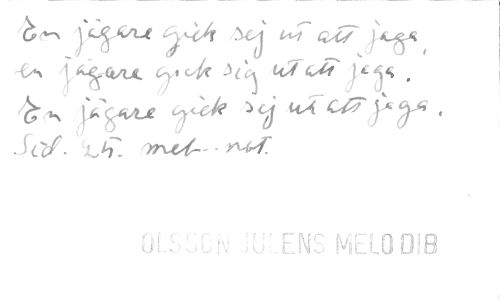 En jägare gick sej ut att jaga,
en jägare gick sig ut att jaga.
En jägare gick sej ut att jaga.
Sid. met. not.
OLSSON JULENS MELODIB